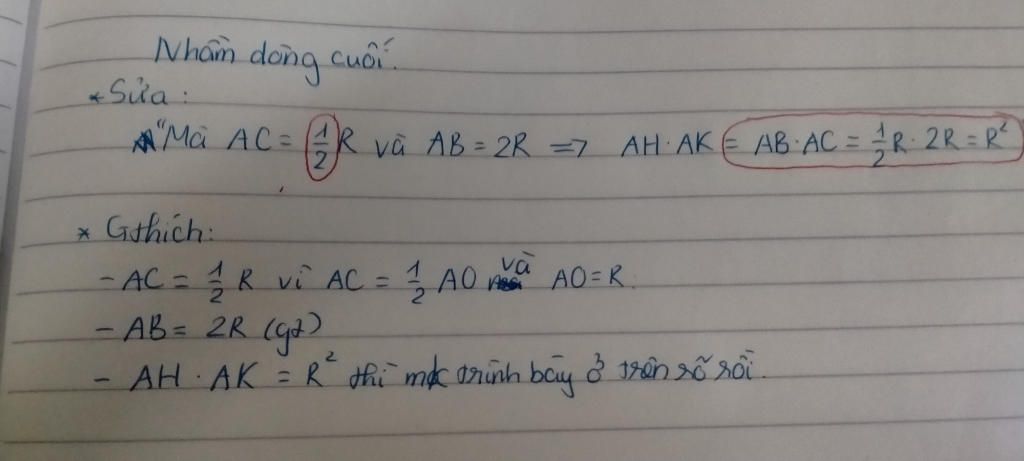 Nhầm dòng cuối.
* Sửa:
"Mà AC = 1/2 R và AB = 2R => AH·AK = AB·AC = 1/2 R · 2R = R²
* Gthích:
- AC = 1/2 R vì AC = 1/2 AO và AO = R.
- AB = 2R (gt)
- AH · AK = R² thì mk trình bày ở trên rõ rồi.